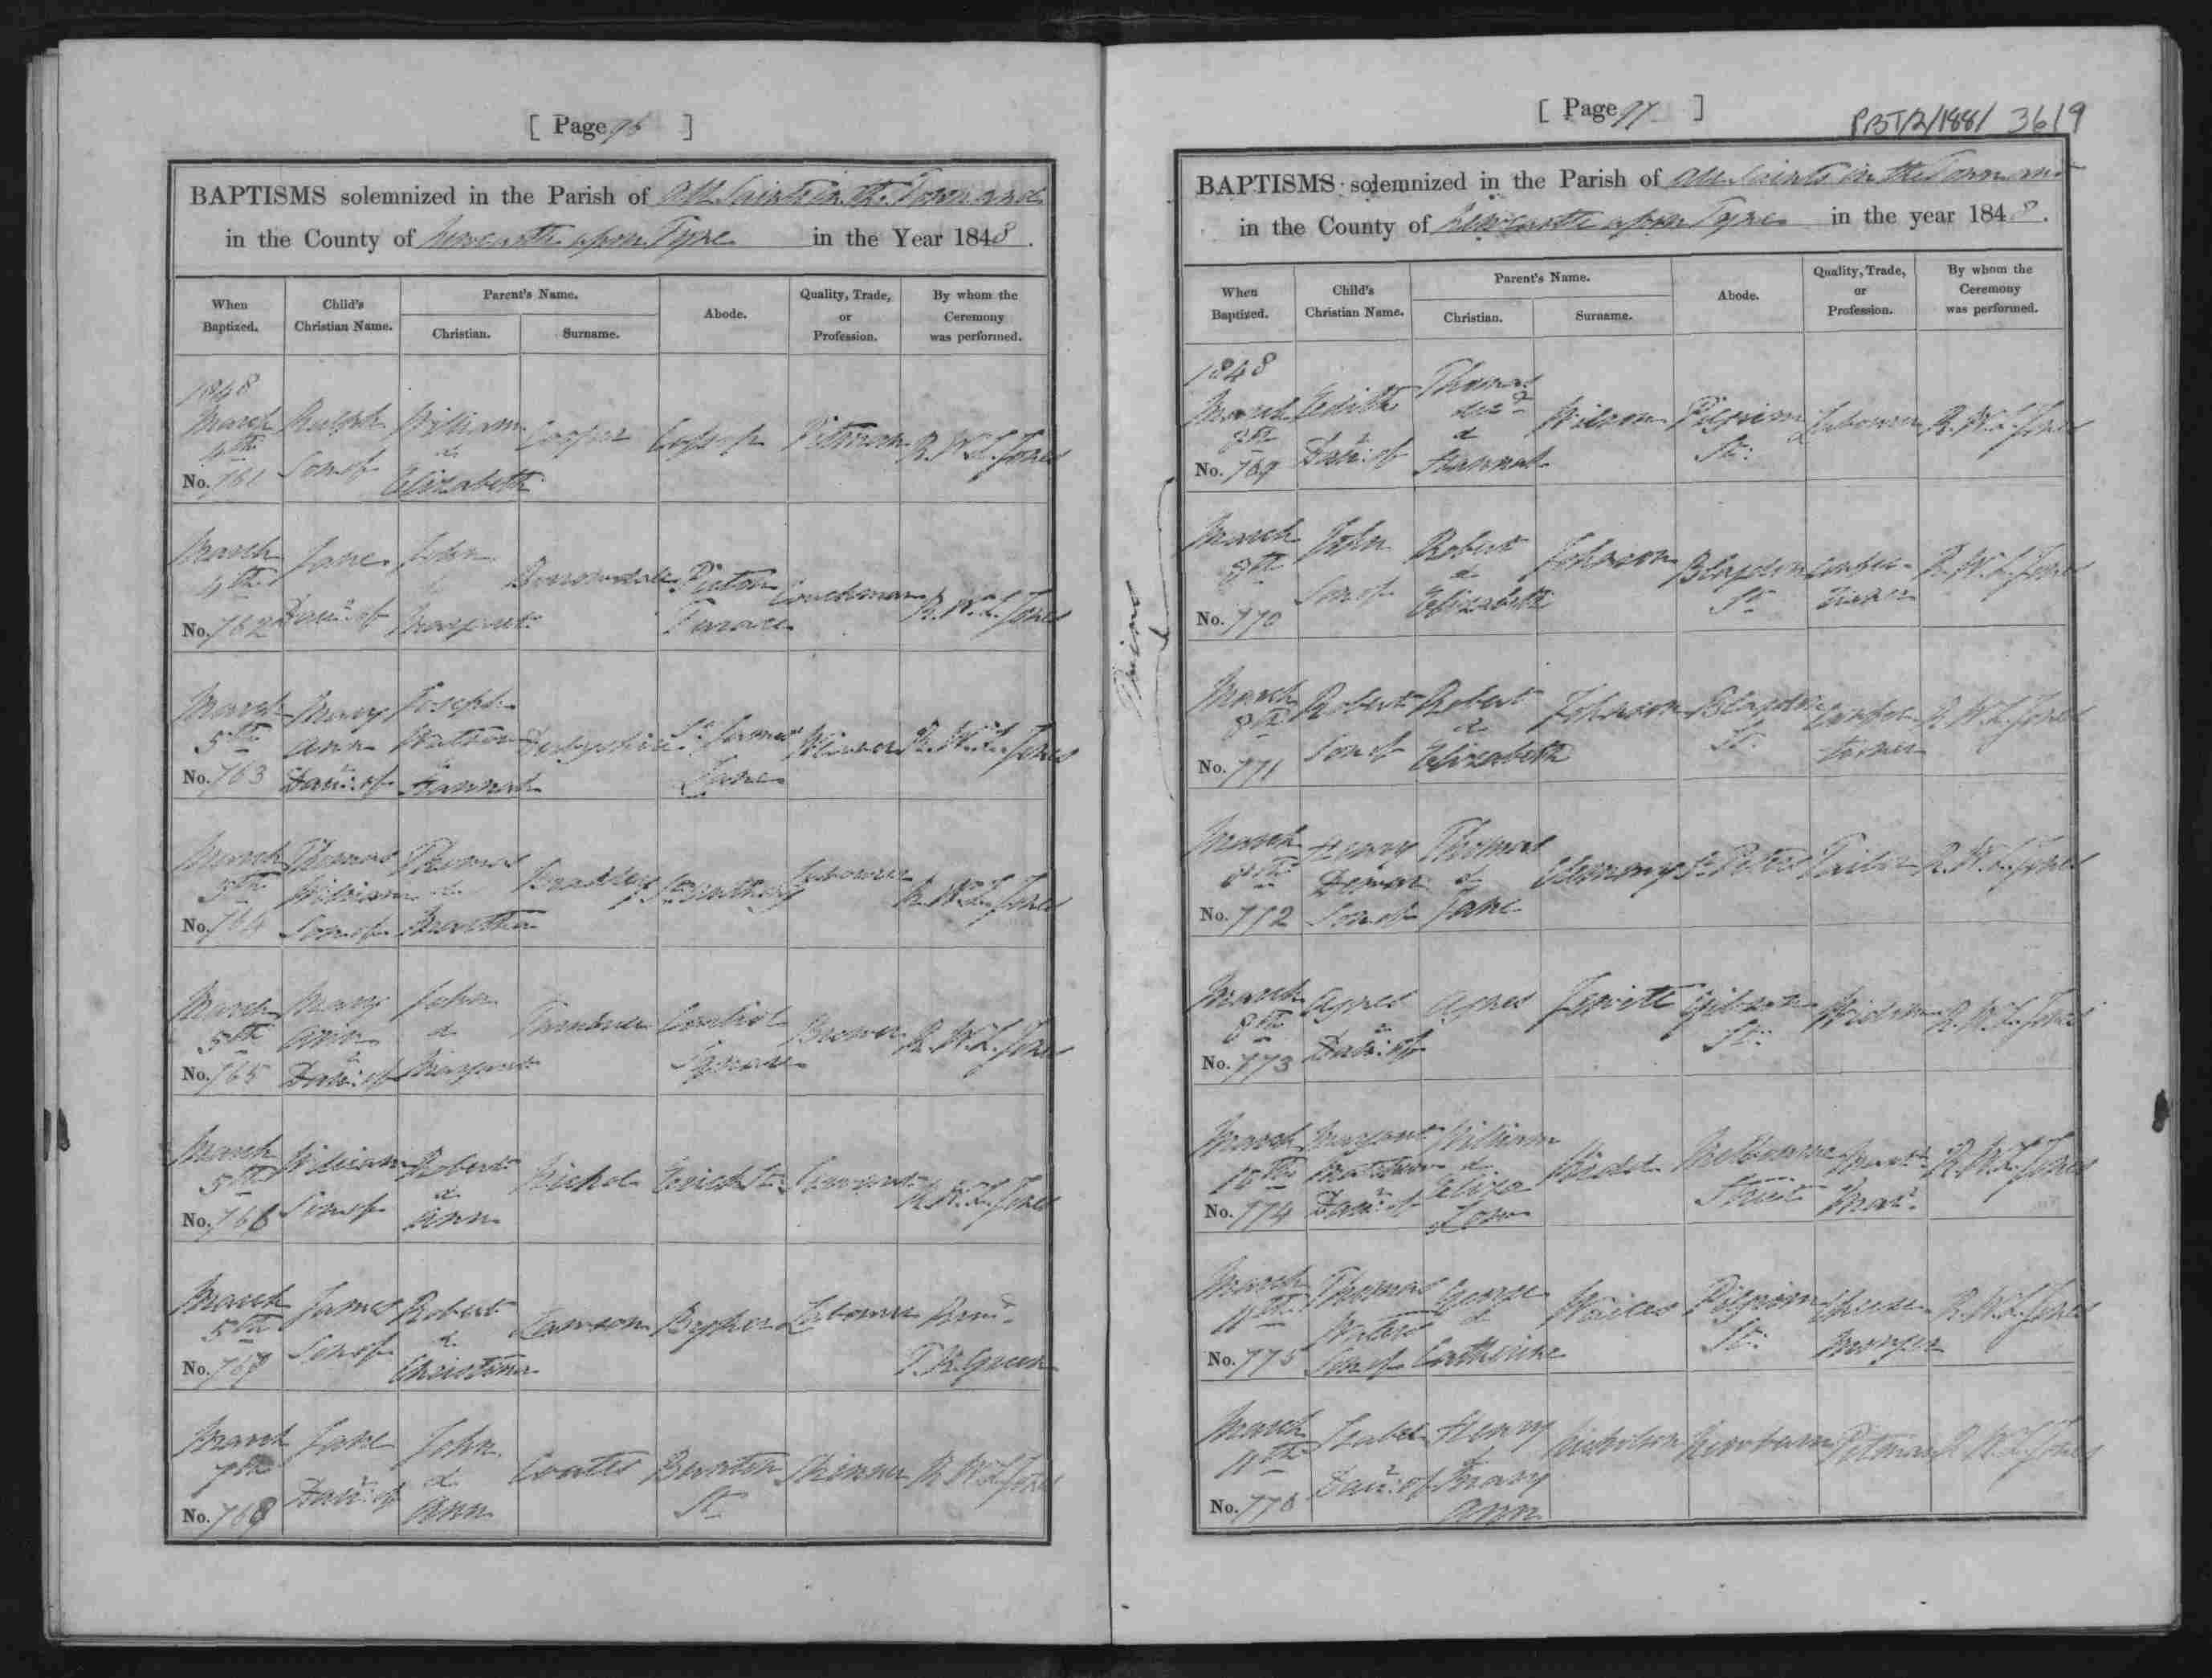 [ Page 96 ]
BAPTISMS solemnized in the Parish of All Saints in the Town and
in the County of Newcastle upon Tyne in the Year 1848.
When Baptized. Child's Christian Name. Parent's Name. Christian. Surname. Abode. Quality, Trade, or Profession. By whom the Ceremony was performed.
1848
March 4th No. 761 Ralph Son of William & Elizabeth Cooper Pitman R. W. L. Jones
March 4th No. 762 Jane Daur. of John & Margaret Picton Terrace Coachman R. W. L. Jones
March 5th No. 763 Mary Ann Daur. of Joseph Watson & Hannah Derbyshire St. James Lane R. W. L. Jones
March 5th No. 764 Thomas William Son of Thomas & Martha Bradley Labourer R. W. L. Jones
March 5th No. 765 Mary Ann Daur. of John & Margaret Square Brewer R. W. L. Jones
March 5th No. 766 William Son of Robert & Ann Nichol R. W. L. Jones
March 5th No. 767 James Son of Robert & Christina Lawson Byker Labourer Revd. T. R. Green
March 7th No. 768 Jane Daur. of John & Ann Coates Buxton St. Skinner R. W. L. Jones
[ Page 97 ]
PBT/2/1881 3619
BAPTISMS solemnized in the Parish of All Saints in the Town and
in the County of Newcastle upon Tyne in the year 1848.
When Baptized. Child's Christian Name. Parent's Name. Christian. Surname. Abode. Quality, Trade, or Profession. By whom the Ceremony was performed.
1848
March 8th No. 769 Edith Daur. of Thomas decd. & Hannah Wilson Pilgrim St. Labourer R. W. L. Jones
Twins
March 8th No. 770 John Son of Robert & Elizabeth Johnson Blagdon St. Confectioner R. W. L. Jones
March 8th No. 771 Robert Son of Robert & Elizabeth Johnson Blagdon St. Confectioner R. W. L. Jones
March 8th No. 772 Henry Son of Thomas & Jane St. Peters Tailor R. W. L. Jones
March 8th No. 773 Agnes Daur. of Agnes Gibson St. Widow R. W. L. Jones
March 10th No. 774 Margaret Daur. of William & Eliza Kidd Melbourne Street Mastr. Marr. R. W. L. Jones
March 11th No. 775 Thomas Waters Son of George & Catherine Wailes Pilgrim St. Cheese Monger R. W. L. Jones
March 11th No. 776 Isabel Daur. of Henry & Mary Ann Nicholson Newburn Pitman R. W. L. Jones